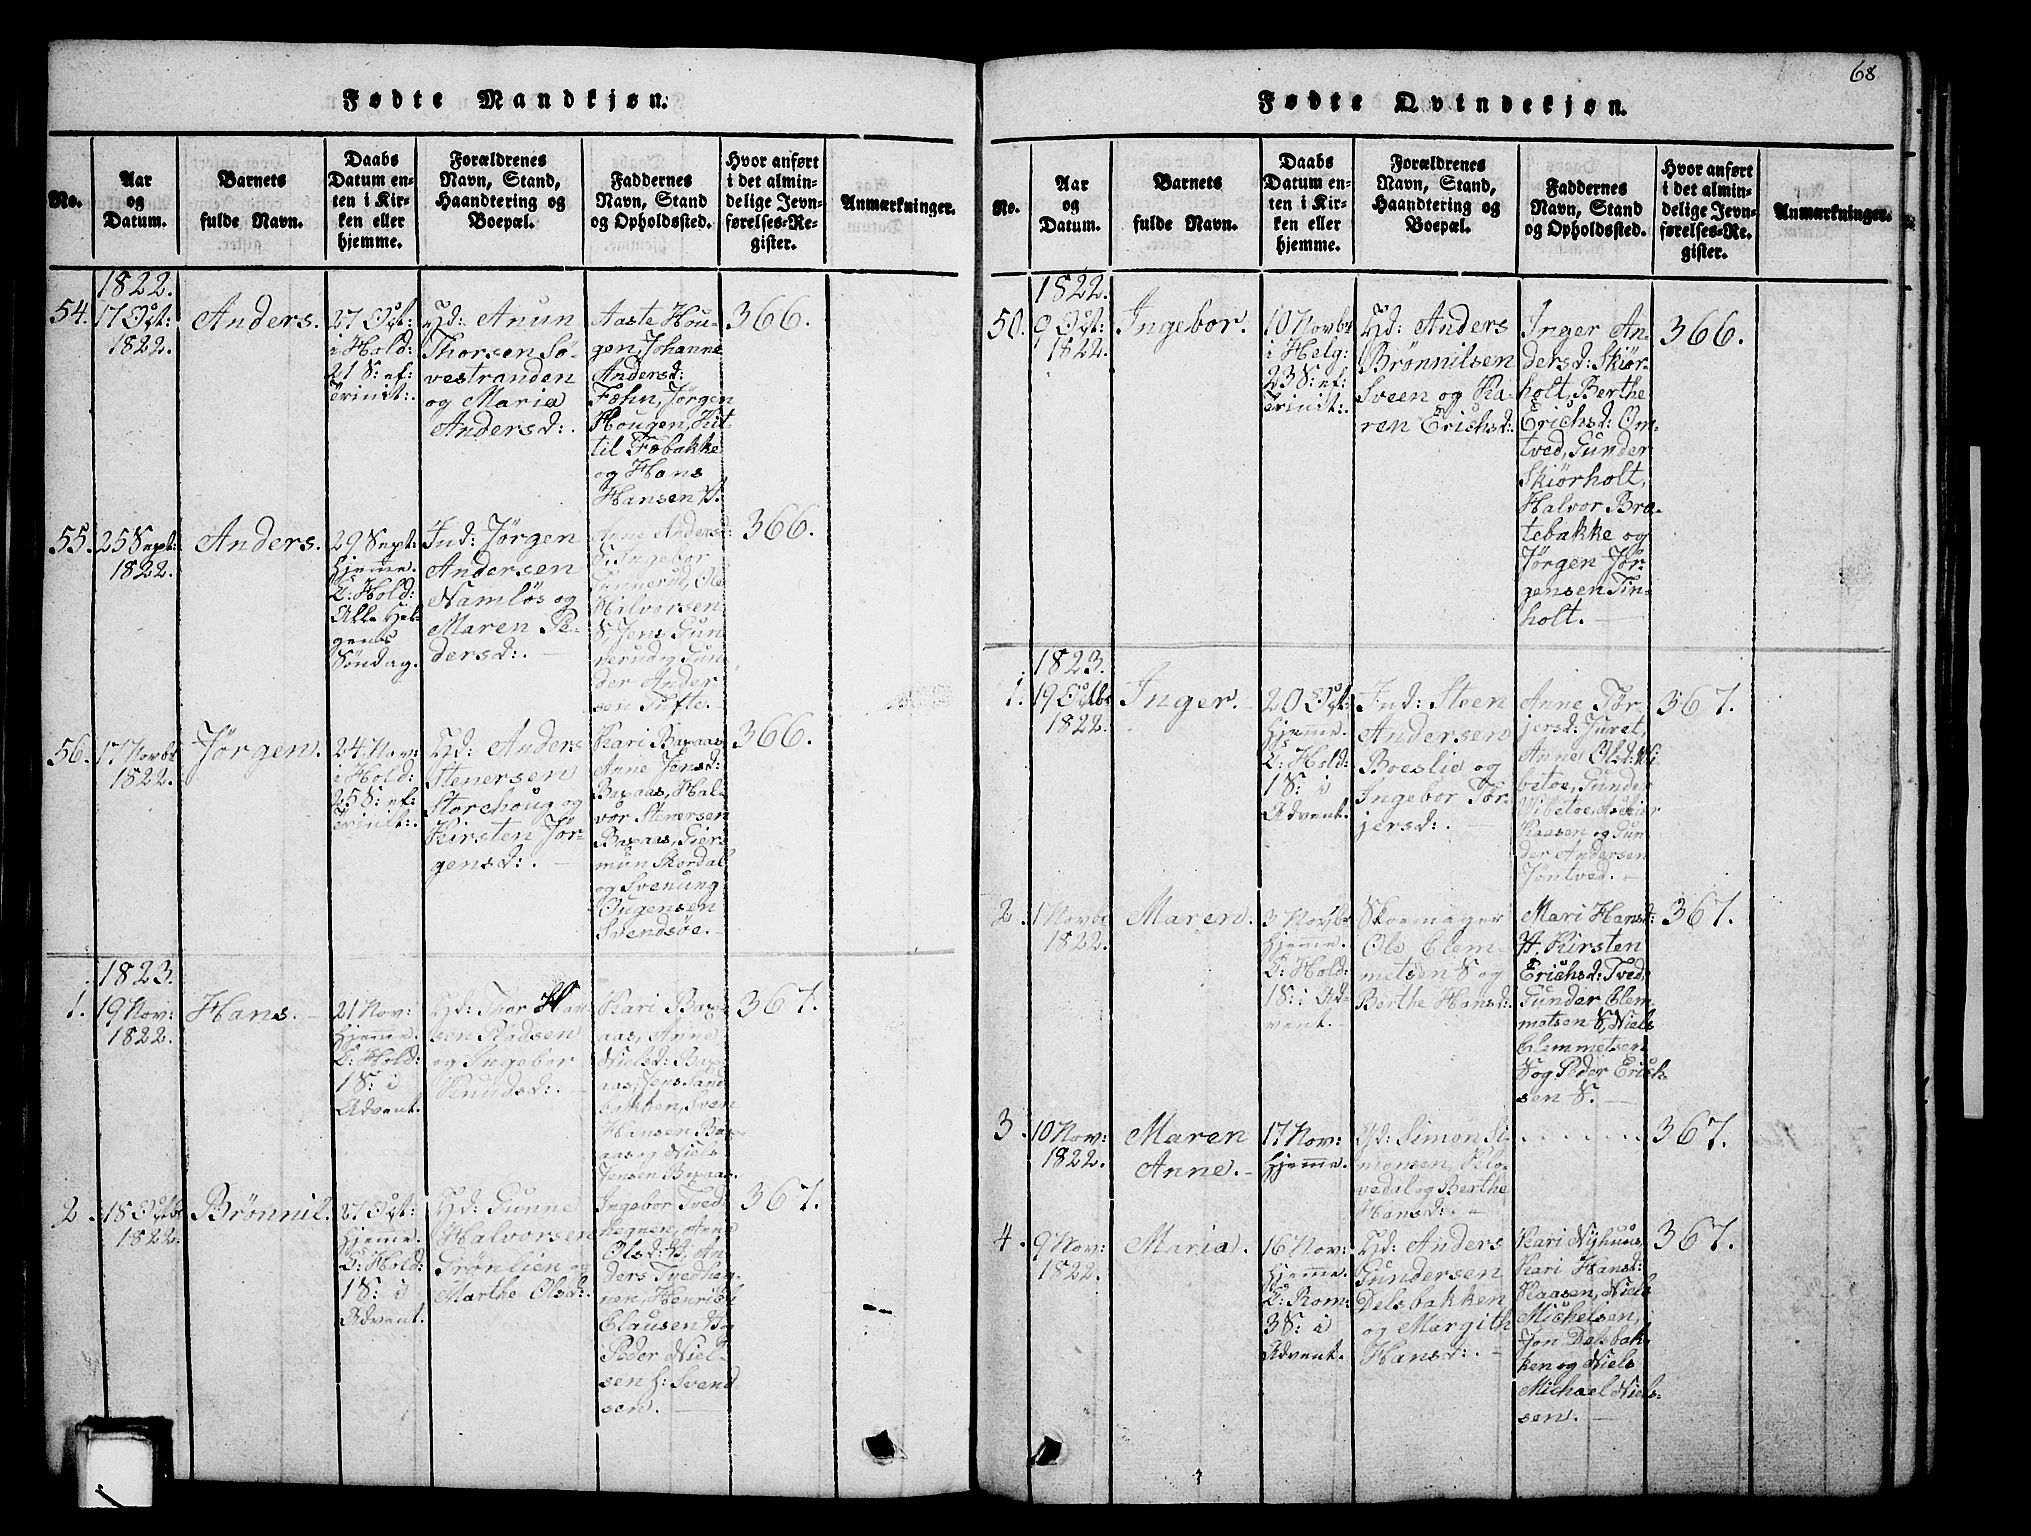 68
Fødte Mandkjøn.
No.
Aar
og
Datum.
Barnets
fulde Navn.
Daabs
Datum en-
ten i Kir-
ken eller
hjemme.
Forældrenes
Navn, Stand,
Haandtering og
Boepæl.
Faddernes
Navn, Stand
og Opholdssted.
Hvor anført
i det almin-
delige Jevn-
førelses-Re-
gister.
Anmærkninger.
1822.
54.
17 Oct:
1822.
Anders.
27 Oct:
i Hold:
21 S: ef:
Trinit:.
Gd: Anun
Thorsen Sö-
vestranden
og Maria
Andersd:.
Aaste Hou-
gen, Johanne
Andersd:
Fæhn, Jörgen
Hougen, Kit-
til Fæbakke
og Hans
Hansen H.
366.
55.
25 Sept:
1822.
Anders.
29 Sept:
hjemme.
C: Hold:
Alle Hel-
gens
Söndag.
Ind: Jörgen
Andersen
Namlös og
Maren Pe-
dersd:.
Anne Andersd:
S. Ingebor
Gunnerud, Ole
Halvorsen
S, Jens Gun-
nerud og Gun-
der Ander
sen Tufte.
366.
56.
17 Novbr
1822.
Jörgen.
24 Nov:
i Hold:
25 S: ef:
Trinit:.
Gd: Anders
Stenersen
Storehoug og
Kirsten Jör-
gensd:.
Kari Baxaas
Anne Jensd:
Baxaas, Hal-
vor Stenersen
Baxaas, Gier-
mun Skordal
og Svenung
Ougensen
Svendsöe.
366.
1823.
1.
19 Nov:
1822.
Hans.
21 Nov:
hjemme.
C: Hold:
1 S: i
Advent.
Gd: Thor Han
sen Rödsen
og Ingebor
Knudsd:.
Kari Bax-
aas, Anne
Nielsd: Bax-
aas, Jens Sand-
bakken, Sven
Hansen Bax-
aas og Niels
Jensen Baxaas.
367.
2.
18 Octbr
1822.
Brönnil.
27 Oct:
hjemme.
C: Hold:
1 S: i
Advent.
Gd: Gunne
Halvorsen
Grönlien og
Marthe Olsd:.
Ingebor Tved
hegnen, Anne
Olsd: H. An-
ders Tvedheg-
nen, Henrich
Clausen H og
Peder Niel-
sen f: Svend
sen.
367.
Fødte Qvindekjøn.
No.
Aar
og
Datum.
Barnets
fulde Navn.
Daabs
Datum en-
ten i Kir-
ken eller
hjemme.
Forældrenes
Navn, Stand,
Haandtering og
Boepæl.
Faddernes
Navn, Stand
og Opholdssted.
Hvor anført
i det almin-
delige Jevn-
førelses-Re-
gister.
Anmærkninger.
1822.
50.
9 Oct:
1822.
Ingebor.
10 Novbr
i Helg:
23 S: ef:
Trinit:.
Gd: Anders
Brönnilsen
Sveen og Ka-
ren Erichsd:
Inger An-
dersd: Skiör-
holt, Berthe
Erichsd: Om-
tved, Gunder
Skiörholt,
Halvor Bra-
tebakke og
Jörgen Jör-
gensen Tin-
holt.
366.
1823.
1.
19 Octbr
1822.
Inger.
20 Oct:
hjemme.
C: Hold:
1 S: i
Advent.
Ind: Steen
Andersen
Boeslie og
Ingebor Tör-
jersd:.
Anne Tör-
jersd: Juret,
Anne Olsd: Vi-
betoe, Gunder
Vibetoe, Asckier
Kaasen og Gun
der Andersen
Jöntved.
367.
2.
1 Novbr
1822.
Maren.
3 Novbr
hjemme.
C: Hold:
1 S: i Ad-
vent.
Skoemager
Ole Clem-
metsen S og
Berthe Hansd:
Mari Hansd:
H. Kirsten
Erichsd: Tved,
Gunder Clem-
metsen S, Niels
Clemmetsen
S og Peder Erich-
sen S.
367.
3.
10 Nov:
1822.
Maren
Anne.
17 Nov:
hjemme.
Gd: Simon Si-
monsen, Kelo-
vedal og Berthe
Hansd:.
. . . . . . .
367.
4.
9 Nov:
1822.
Maria.
16 Nov:
hjemme.
C: Rom:
3 S: i
Advent.
Gd: Anders
Gundersen
Delsbakken
og Margith
Hansd:.
Kari Nyhuus,
Kari Hansd:
Kaasen, Niels
Michelsen,
Jon Delsbak-
ken og Niels
Michael Niels-
sen.
367.